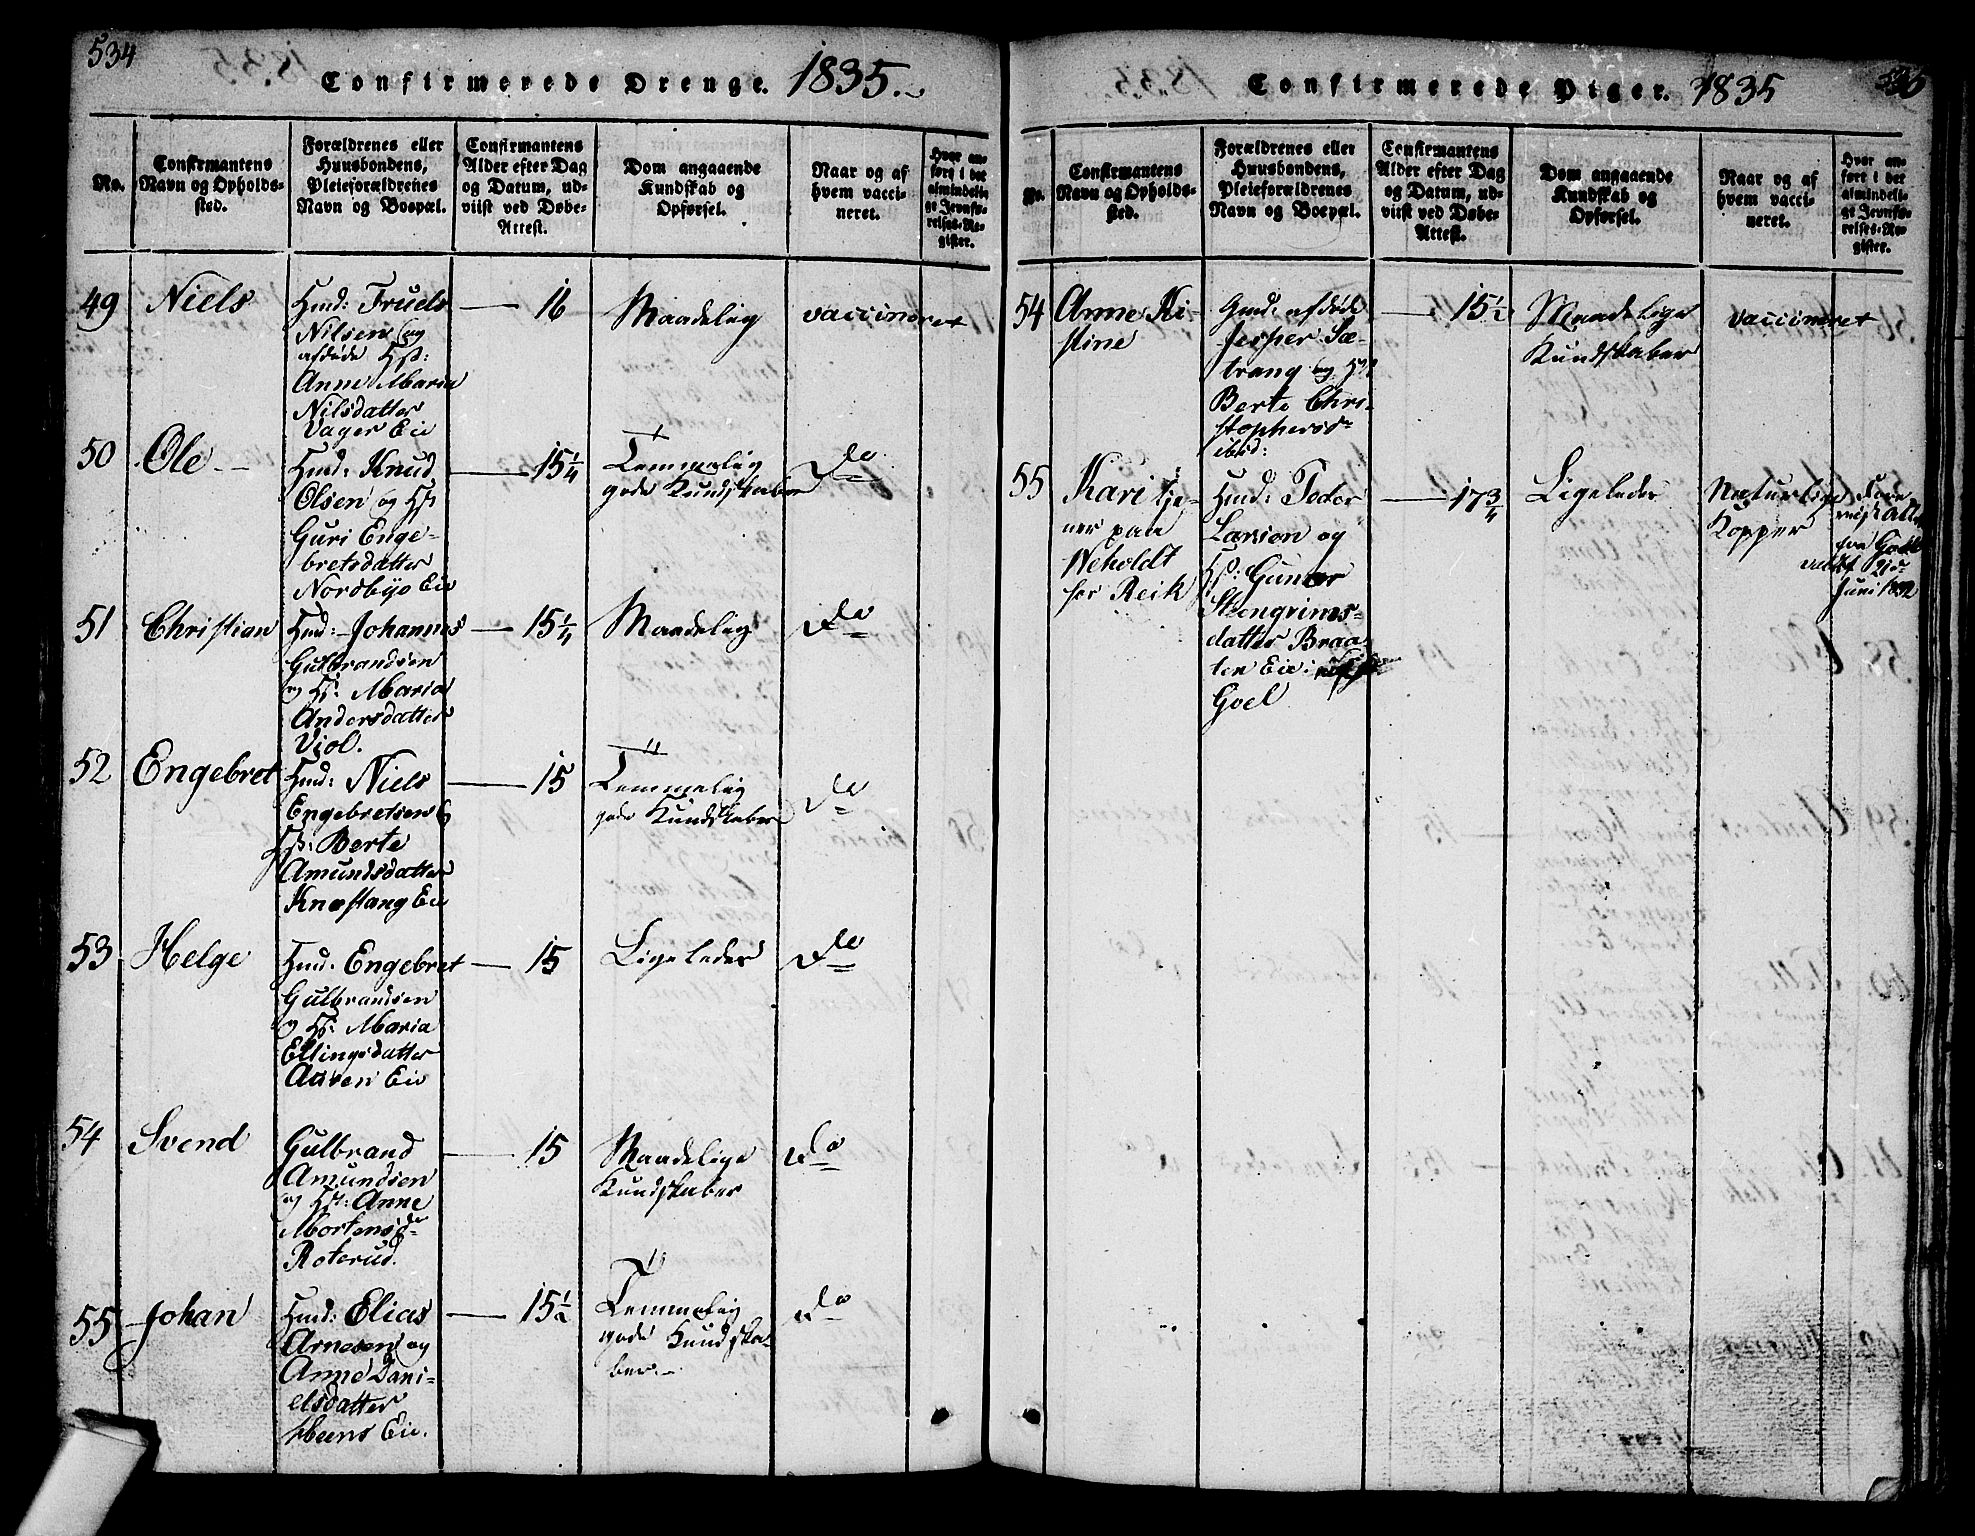 534
Confirmerede Drenge. 1835.
No.
Confirmantens Navn og Opholds-sted.
Forældrenes eller Huusbondens, Pleieforældrenes Navn og Bopæl.
Confirmantens Alder efter Dag og Datum, ud-viist ved Døbe-Attest.
Dom angaaende Kundskab og Opførsel.
Naar og af hvem vacci-neret.
Hvor an-ført i det almindeli-ge Jevnfø-relses-Re-gister.
49 Niels
Hmd: Truels
Nilsen og
afdøde Hst:
Anne Maria
Nilsdatter
Vager Eie
16
Maadelig
vaccineret
50 Ole
Hmd: Knud
Olsen og Hst:
Guri Enge-
bretsdatter
Nordbye Eie
15 1/4
Temmelig
gode Kundskaber
Do
51 Christian
Hmd: Johannes
Gulbrandsen
og Hst: Maria
Andersdatter
Viol.
15 1/4
Maadelig
Do
52 Engebret
Hmd: Niels
Engebretsen &
Hst: Berte
Amundsdatter
Knestang Eie
15
Temmelig
gode Kundskaber
Do
53 Helge
Hmd: Engebret
Gulbrandsen
og Hst: Maria
Ellingsdatter
Aasen Eie
15
Ligeledes
Do
54 Svend
Gulbrand
Amundsen
og Hst: Anne
Mortensdr
Roterud.
15
Maadelige
Kundskaber
Do
55 Johan
Hmd: Elias
Arnesen og
Anne Dani-
elsdatter
Heens Eie.
15 1/2
Temmelig
gode Kundska-
ber.
Do
Confirmerede Piger. 1835
No.
Confirmantens Navn og Opholds-sted.
Forældrenes eller Huusbondens, Pleieforældrenes Navn og Boepæl.
Confirmantens Alder efter Dag og Datum, ud-viist ved Døbe-Attest.
Dom angaaende Kundskab og Opførsel.
Naar og af hvem vacci-neret.
Hvor an-ført i det almindeli-ge Jevnfø-relses-Re-gister.
54 Anne Ki-
stine
Gmd: afdøde
Jesper Sæ-
trang og Hst:
Berte Chri-
stophersdr
ibid:
15 1/2
Maadelige
Kundskaber
vaccineret
55 Kari tje-
ner paa
Weholdt
for Reik
Hmd: Peder
Larsen og
Hst: Gunor
Steengrims-
datter Braa-
ten Eie:
Goel
17 3/4
Ligeledes
Naturlige
Kopper
Juni 1832